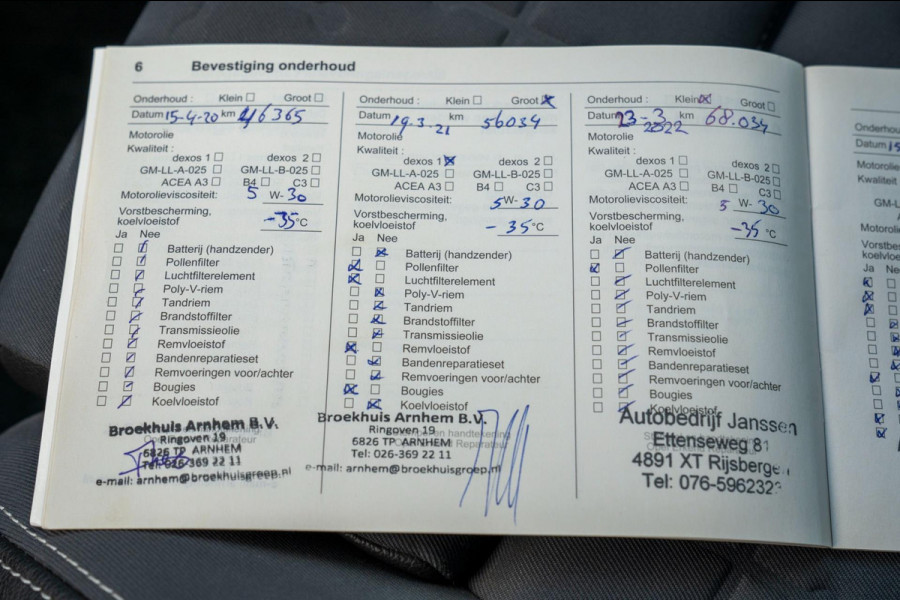 6 Bevestiging onderhoud
Onderhoud : Klein Groot
Datum 15-4-20 km 46365
Motorolie
Kwaliteit :
dexos 1 dexos 2
GM-LL-A-025 GM-LL-B-025
ACEA A3 B4 C3
Motorolieviscositeit: 5 W- 30
Vorstbescherming,
koelvloeistof -35 °C
Ja Nee
Batterij (handzender)
Pollenfilter
Luchtfilterelement
Poly-V-riem
Tandriem
Brandstoffilter
Transmissieolie
Remvloeistof
Bandenreparatieset
Remvoeringen voor/achter
Bougies
Koelvloeistof
Broekhuis Arnhem B.V.
Ringoven 19
6826 TP ARNHEM
Tel: 026-369 22 11
e-mail: arnhem@broekhuisgroep.nl
Onderhoud : Klein Groot
Datum 19.3.21 km 56034
Motorolie
Kwaliteit :
dexos 1 dexos 2
GM-LL-A-025 GM-LL-B-025
ACEA A3 B4 C3
Motorolieviscositeit: 5 W- 30
Vorstbescherming,
koelvloeistof - 35 °C
Ja Nee
Batterij (handzender)
Pollenfilter
Luchtfilterelement
Poly-V-riem
Tandriem
Brandstoffilter
Transmissieolie
Remvloeistof
Bandenreparatieset
Remvoeringen voor/achter
Bougies
Koelvloeistof
Broekhuis Arnhem B.V.
Ringoven 19
6826 TP ARNHEM
Tel: 026-369 22 11
e-mail: arnhem@broekhuisgroep.nl
Onderhoud : Klein Groot
Datum 23-3-2022 km 68.034
Motorolie
Kwaliteit :
dexos 1 dexos 2
GM-LL-A-025 GM-LL-B-025
ACEA A3 B4 C3
Motorolieviscositeit: 5 W- 30
Vorstbescherming,
koelvloeistof -35 °C
Ja Nee
Batterij (handzender)
Pollenfilter
Luchtfilterelement
Poly-V-riem
Tandriem
Brandstoffilter
Transmissieolie
Remvloeistof
Bandenreparatieset
Remvoeringen voor/achter
Bougies
Koelvloeistof
Autobedrijf Janssen
Ettenseweg 81
4891 XT Rijsberge
Tel: 076-5962323
Datum
Kwaliteit
Ja Nee